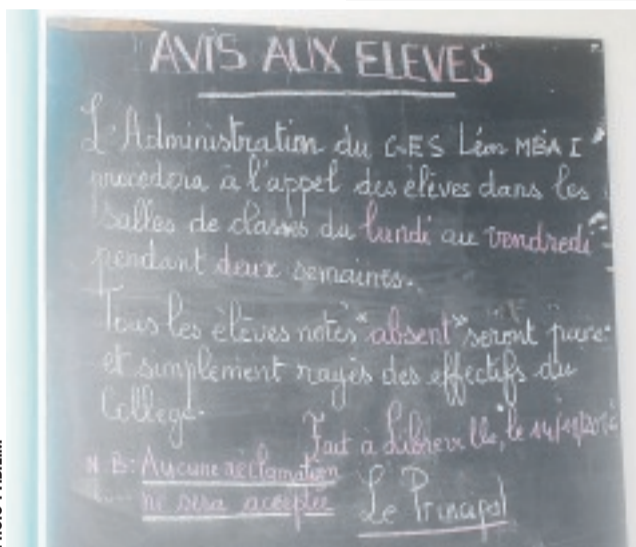 AVIS AUX ELEVES
L'Administration du C.E.S Léon MBA I
procedera à l'appel des élèves dans les
salles de classes du lundi au vendredi
pendant deux semaines.
Tous les élèves notés "absent" seront pure
et simplement rayés des effectifs du
Collège.
Fait à Libreville, le
N B: Aucune réclamation
ne sera acceptée
Le Principal